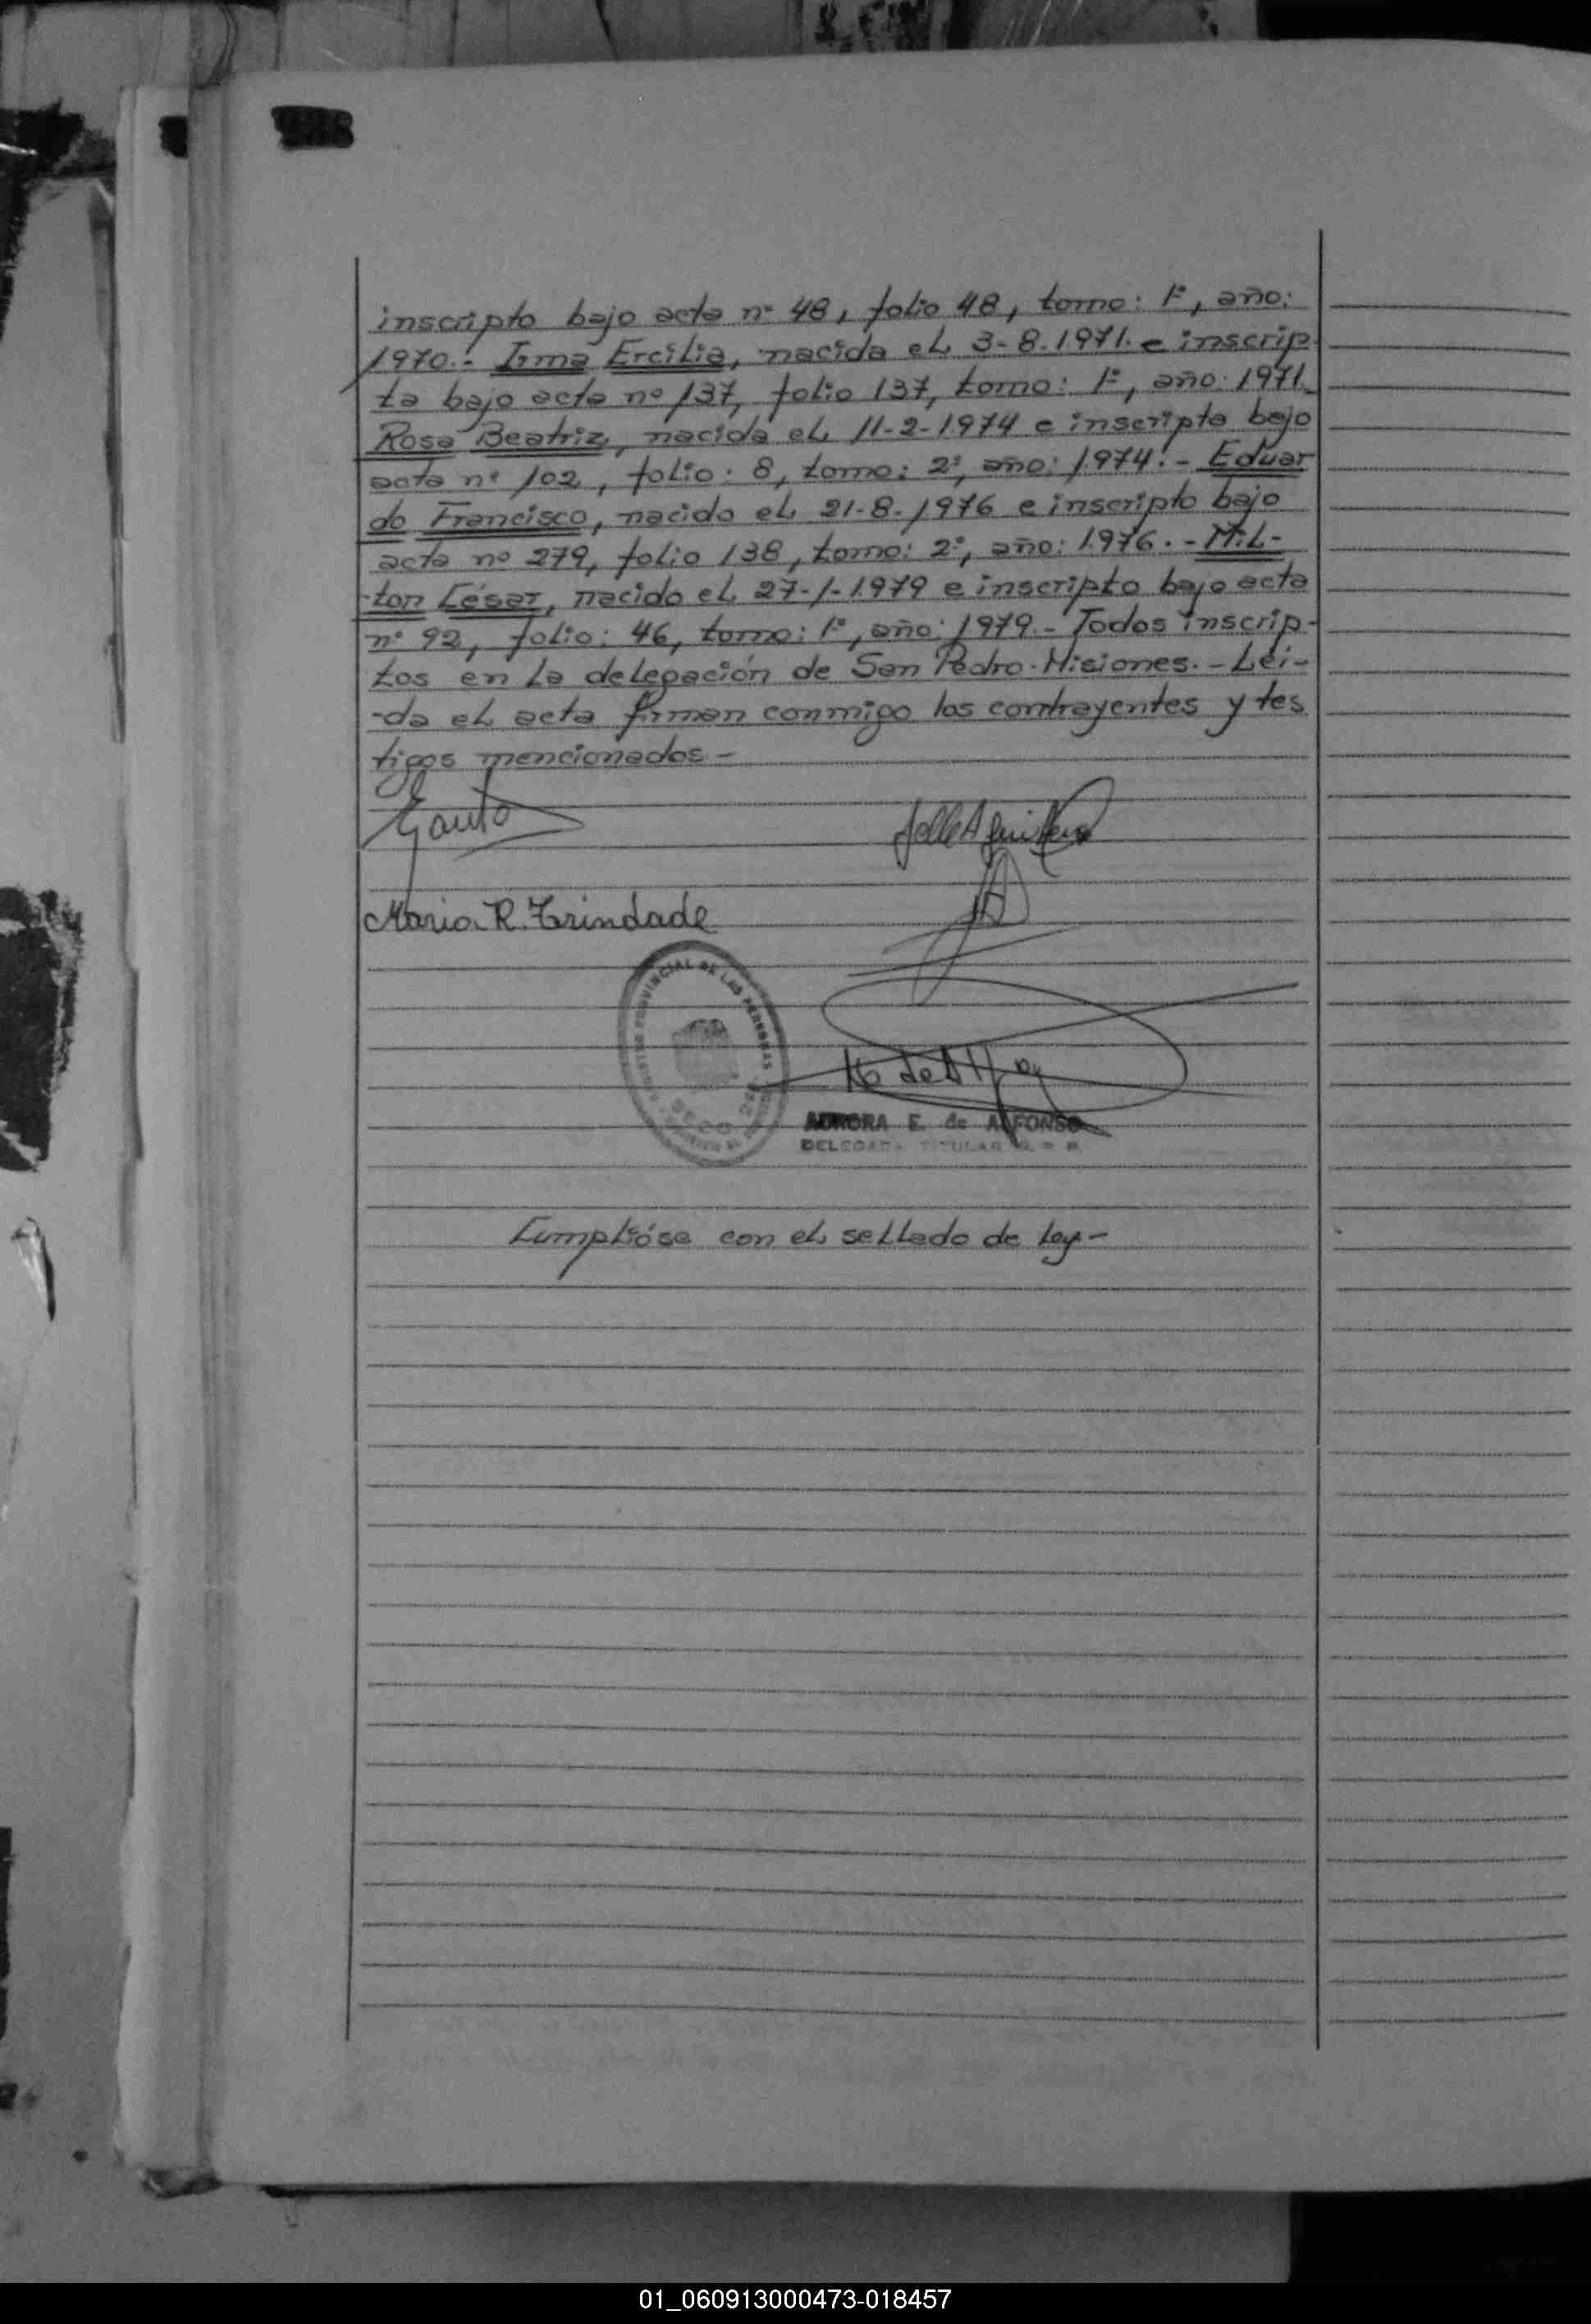 inscripto bajo acta nº 48, folio 48, tomo: 1º, año:
1970.- Irma Ercilia, nacida el 3-8-1971. e inscrip
ta bajo acta nº 137, folio 137, tomo: 1º, año: 1971.
Rosa Beatriz, nacida el 11-2-1974 e inscripta bajo
acta nº 102, folio: 8, tomo: 2º, año: 1974.- Eduar
do Francisco, nacido el 21-8-1976 e inscripto bajo
acta nº 279, folio 138, tomo: 2º, año: 1976.- Mil-
-ton César, nacido el 27-1-1979 e inscripto bajo acta
nº 92, folio: 46, tomo: 1º, año: 1979.- Todos inscrip-
tos en la delegación de San Pedro-Misiones.- Leí-
-da el acta firman conmigo los contrayentes y tes
tigos mencionados-
Gauto
Maria R. Trindade
PROVINCIAL DE LAS PERSONAS
AURORA E. de ALFONSO
DELEGADA TITULAR
Cumplióse con el sellado de ley-
01_060913000473-018457